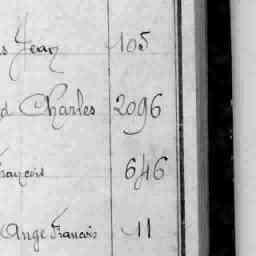 Jean 105
Charles 2096
François 646
Ange François 11